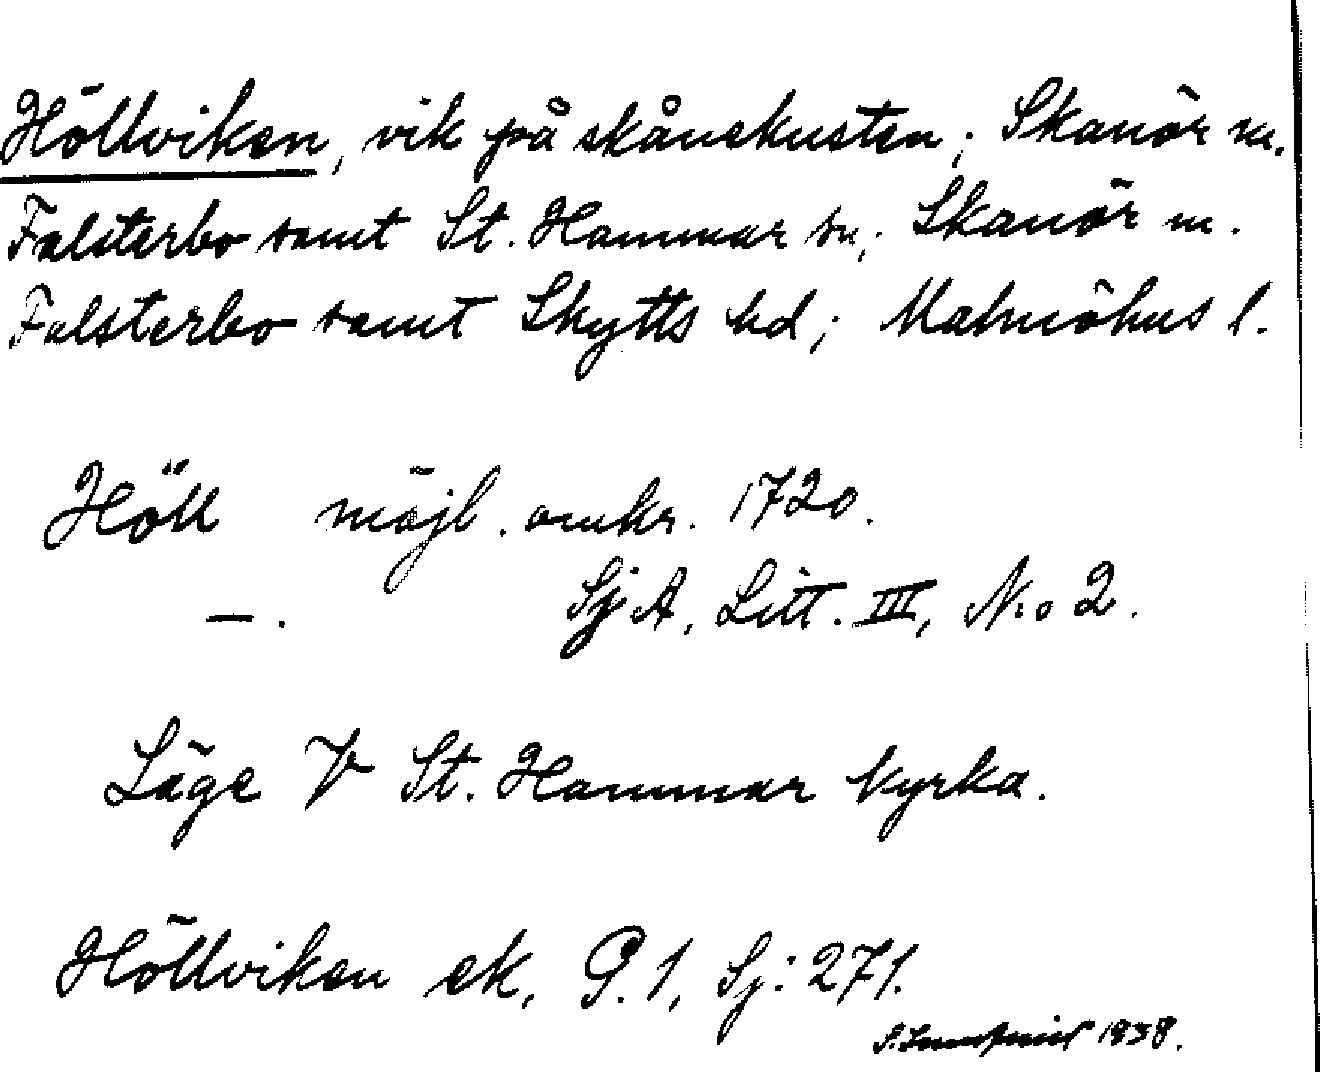 Höllviken, vik på skånekusten; Skanör m.
Falsterbo samt St. Hammar sn; Skanör m.
Falsterbo samt Skytts hd; Malmöhus l.
Höll möjl. omkr. 1720.
—. SjA, Litt. III, N:o 2.
Läge V St. Hammar kyrka.
Höllviken ek, G. 1, Sj: 271.
1938.